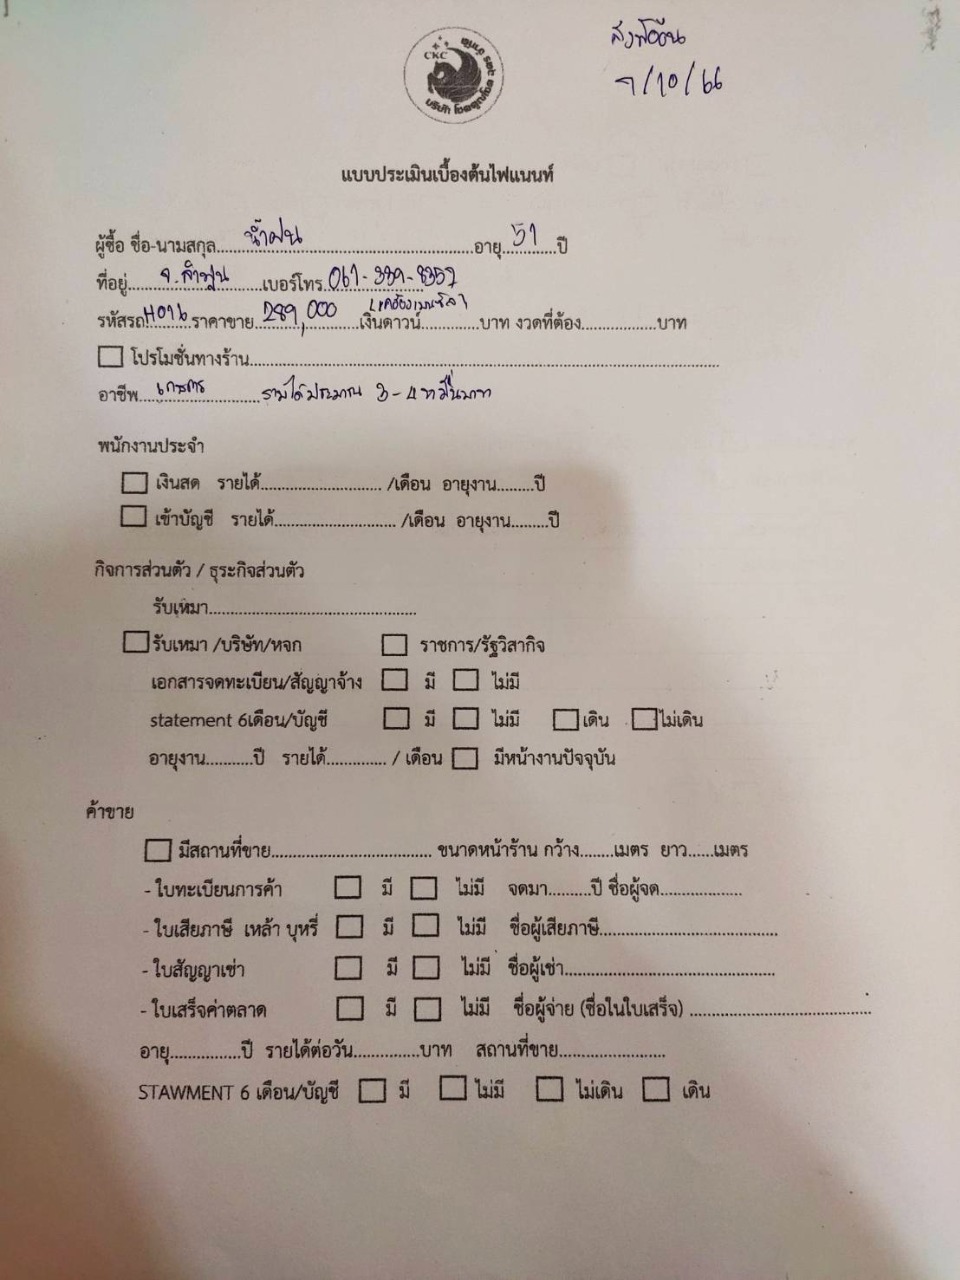 CKC
บริษัท โชคคูณโชค
7/10/66
แบบประเมินเบื้องต้นไฟแนนท์
ผู้ซื้อ ชื่อ-นามสกุล.....น้ำฝน.....อายุ..51..ปี
ที่อยู่...จ.ลำพูน...เบอร์โทร.061-339-8357
รหัสรถ.H016..ราคาขาย..289,000..เงินดาวน์............บาท งวดที่ต้อง................บาท
โปรโมชั่นทางร้าน...................................................
อาชีพ...เกษตร......รายได้ประมาณ 3-4 หมื่นบาท
พนักงานประจำ
เงินสด รายได้............................ /เดือน อายุงาน.........ปี
เข้าบัญชี รายได้............................ /เดือน อายุงาน.........ปี
กิจการส่วนตัว / ธุระกิจส่วนตัว
รับเหมา................................................
รับเหมา /บริษัท/หจก ราชการ/รัฐวิสากิจ
เอกสารจดทะเบียน/สัญญาจ้าง มี ไม่มี
statement 6เดือน/บัญชี มี ไม่มี เดิน ไม่เดิน
อายุงาน...........ปี รายได้.............. / เดือน มีหน้างานปัจจุบัน
ค้าขาย
มีสถานที่ขาย..................................... ขนาดหน้าร้าน กว้าง........เมตร ยาว......เมตร
- ใบทะเบียนการค้า มี ไม่มี จดมา..........ปี ชื่อผู้จด...................
- ใบเสียภาษี เหล้า บุหรี่ มี ไม่มี ชื่อผู้เสียภาษี.........................................
- ใบสัญญาเช่า มี ไม่มี ชื่อผู้เช่า................................................
- ใบเสร็จค่าตลาด มี ไม่มี ชื่อผู้จ่าย (ชื่อในใบเสร็จ) ..........................................
อายุ................ปี รายได้ต่อวัน...............บาท สถานที่ขาย.........................
STAWMENT 6 เดือน/บัญชี มี ไม่มี ไม่เดิน เดิน